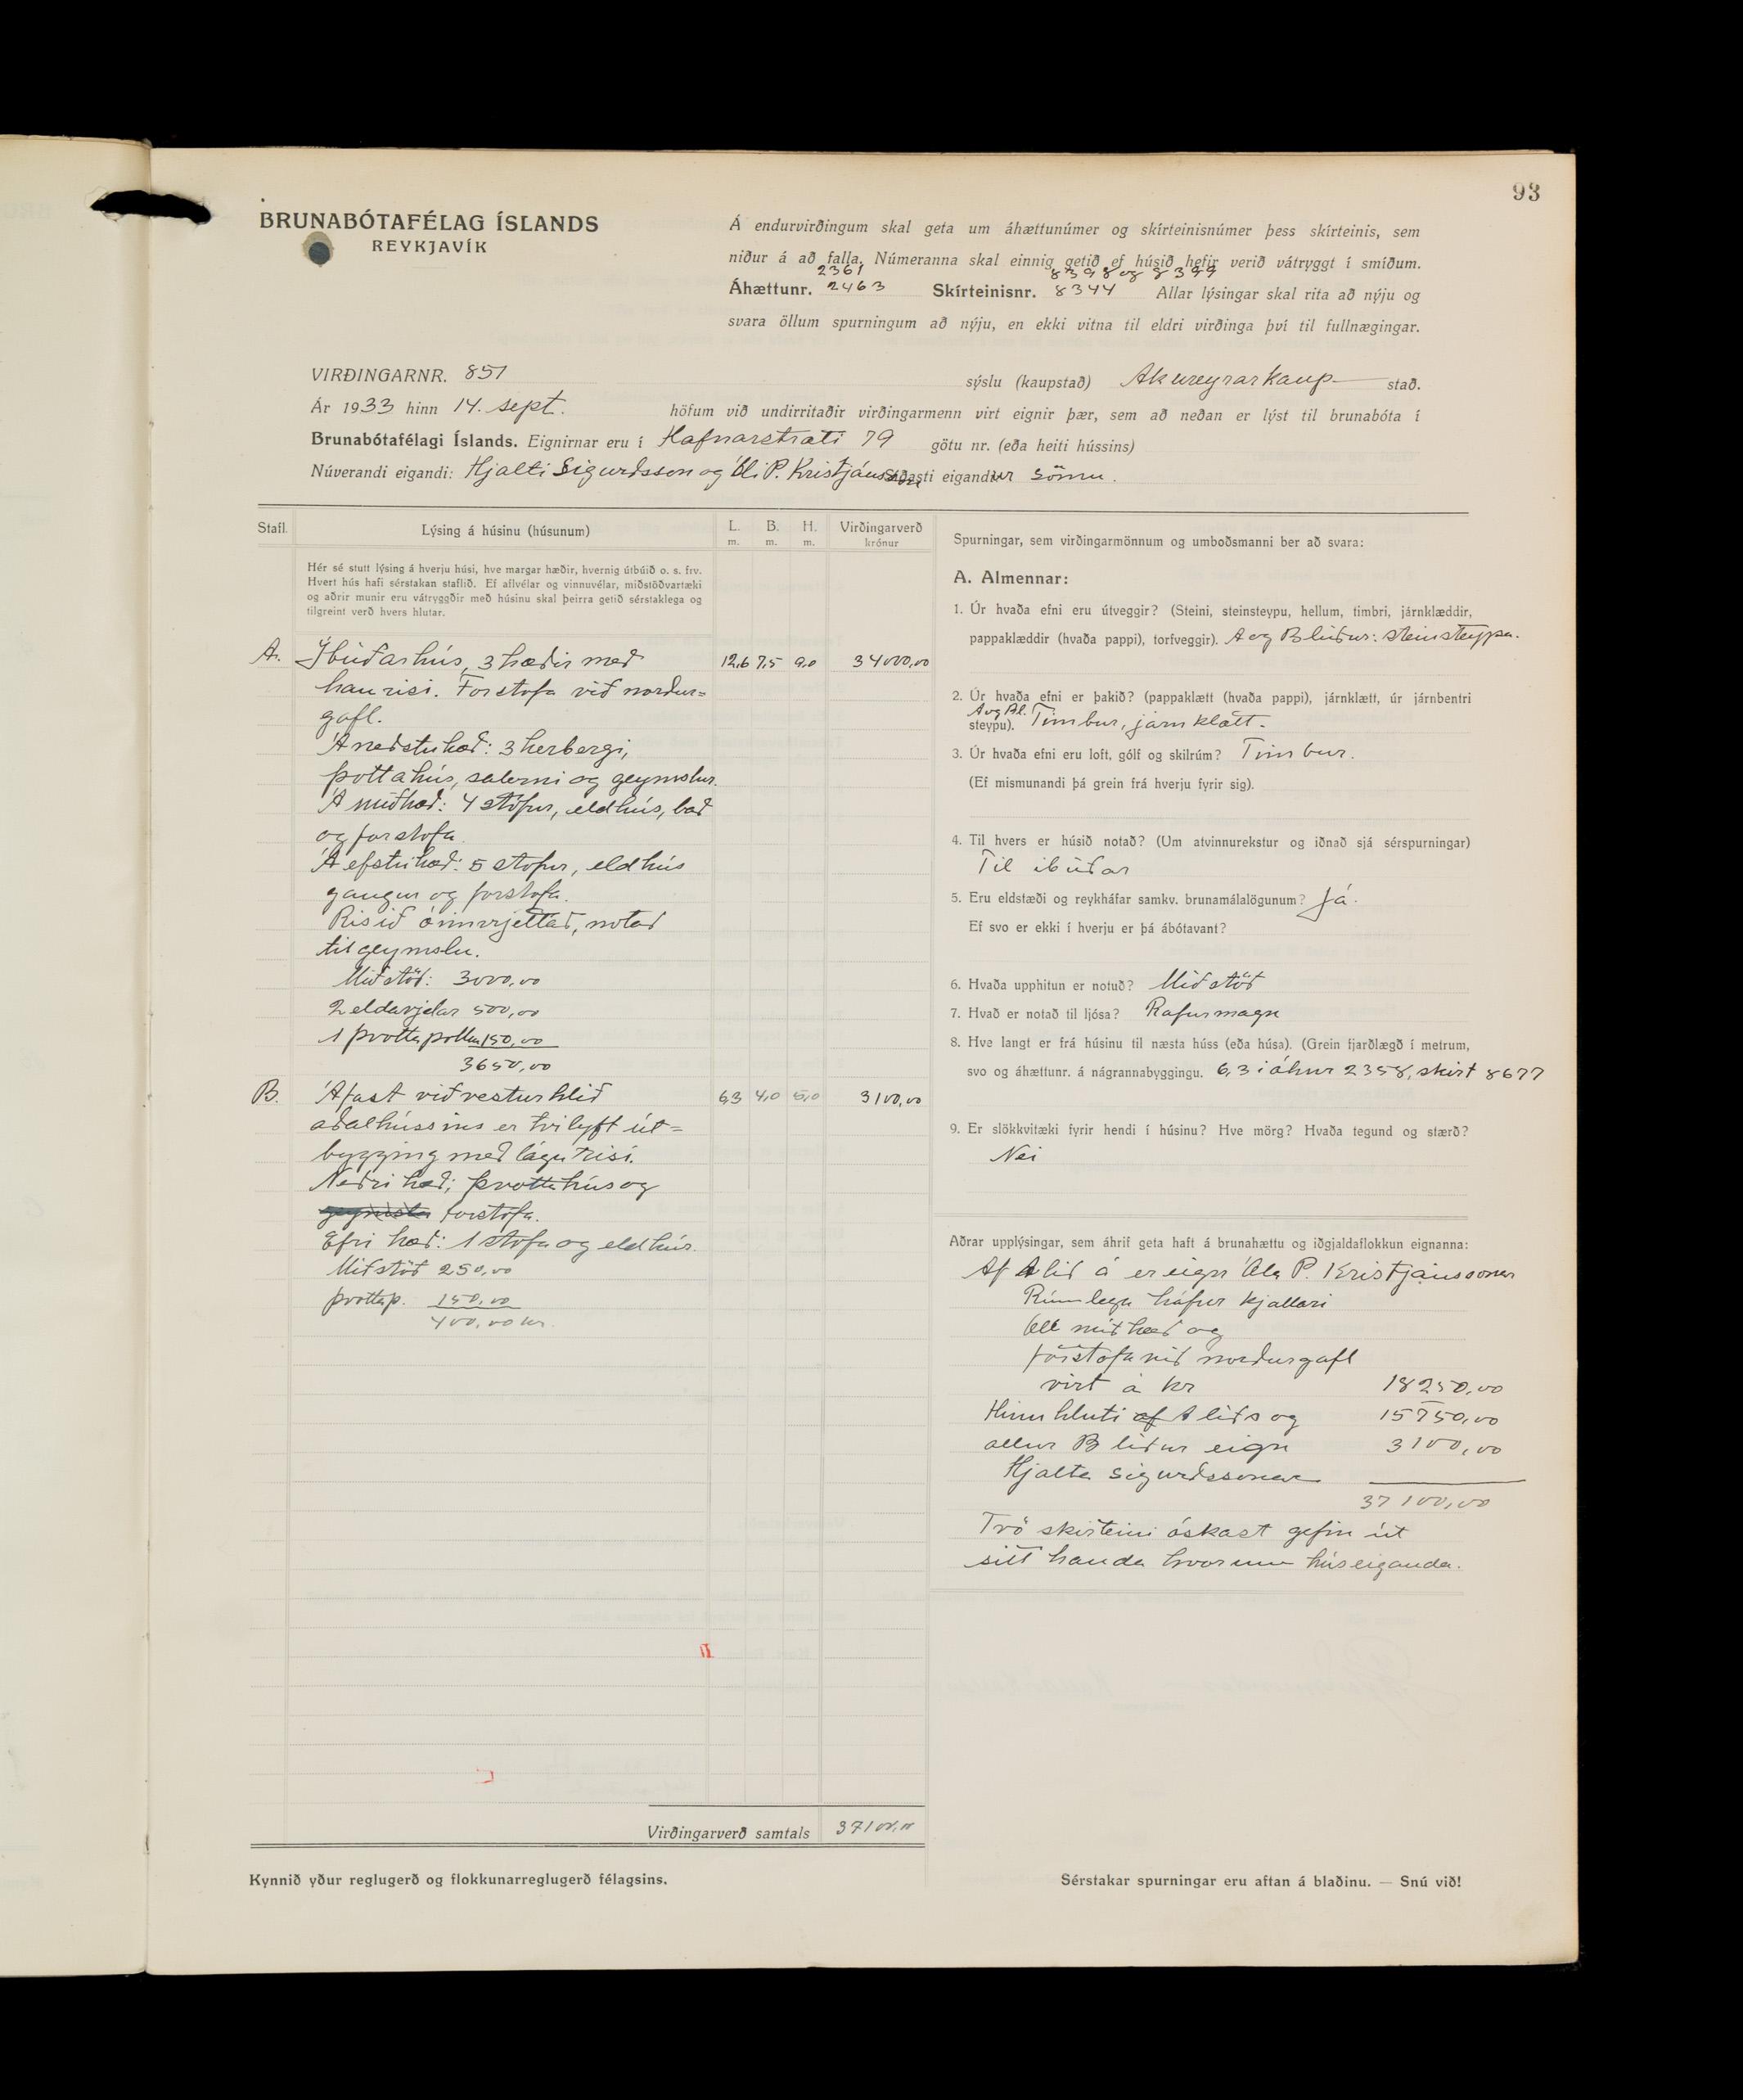 93
BRUNABÓTAFÉLAG ÍSLANDS
REYKJAVÍK
Á endurvirðingum skal geta um áhættunúmer og skírteinisnúmer þess skírteinis, sem
niður á að falla. Númeranna skal einnig getið ef húsið hefir verið vátryggt í smíðum.
2361 8398 og 8399
Áhættunr. 2463 Skírteinisnr. 8344 Allar lýsingar skal rita að nýju og
svara öllum spurningum að nýju, en ekki vitna til eldri virðinga því til fullnægingar.
VIRÐINGARNR. 851 sýslu (kaupstað) Akureyrarkaup- stað.
Ár 1933 hinn 14. sept. höfum við undirritaðir virðingarmenn virt eignir þær, sem að neðan er lýst til brunabóta í
Brunabótafélagi Íslands. Eignirnar eru í Hafnarstræti 79 götu nr. (eða heiti hússins)
Núverandi eigandi: Hjalti Sigurðsson og Óli P. Kristjánsson Síðasti eigandi: sömu.
Stafl. Lýsing á húsinu (húsunum) L. m. B. m. H. m. Virðingarverð krónur
Hér sé stutt lýsing á hverju húsi, hve margar hæðir, hvernig útbúið o. s. frv.
Hvert hús hafi sérstakan staflið. Ef aflvélar og vinnuvélar, miðstöðvartæki
og aðrir munir eru vátryggðir með húsinu skal þeirra getið sérstaklega og
tilgreint verð hvers hlutar.
A. Íbúðarhús, 3 hæðir með 12,6 7,5 9,0 34000,00
háu risi. Forstofa við norður=
gafl.
Á neðstu hæð: 3 herbergi,
þottahús, salerni og geymslur.
Á miðhæð: 4 stofur, eldhús, bað
og forstofa.
Á efstu hæð: 5 stofur, eldhús
gangur og forstofa.
Risið óinnrjettað, notað
til geymslu.
Miðstöð: 3000,00
2 eldavjelar 500,00
1 þvottapottur 150,00
3650,00
B. Áfast við vesturhlið 6,3 4,0 5,0 3100,00
aðalhússins er tvílyft út=
bygging með lágu risi.
Neðri hæð; þvottahús og
geymsla forstofa.
Efri hæð: 1 stofa og eldhús.
Miðstöð 250,00
þvottap. 150,00
400,00 kr.
Virðingarverð samtals 37100,00
Spurningar, sem virðingarmönnum og umboðsmanni ber að svara:
A. Almennar:
1. Úr hvaða efni eru útveggir? (Steini, steinsteypu, hellum, timbri, járnklæddir,
pappaklæddir (hvaða pappi), torfveggir). A og B liður: steinsteypa.
2. Úr hvaða efni er þakið? (pappaklætt (hvaða pappi), járnklætt, úr járnbentri
A og B l.
steypu). Timbur, járnklætt.
3. Úr hvaða efni eru loft, gólf og skilrúm? Timbur.
(Ef mismunandi þá grein frá hverju fyrir sig).
4. Til hvers er húsið notað? (Um atvinnurekstur og iðnað sjá sérspurningar)
Til íbúðar
5. Eru eldstæði og reykháfar samkv. brunamálalögunum? Já.
Ef svo er ekki í hverju er þá ábótavant?
6. Hvaða upphitun er notuð? Miðstöð
7. Hvað er notað til ljósa? Rafurmagn
8. Hve langt er frá húsinu til næsta húss (eða húsa). (Grein fjarðlægð í metrum,
svo og áhættunr. á nágrannabyggingu. 6,3 í áhnr 2358, skirt 8677
9. Er slökkvitæki fyrir hendi í húsinu? Hve mörg? Hvaða tegund og stærð?
Nei
Aðrar upplýsingar, sem áhrif geta haft á brunahættu og iðgjaldaflokkun eignanna:
Af A lið á er eign Óla P. Kristjánssonar
Rúmlega hálfur kjallari
Öll miðhæð og
forstofa við norðurgafl
virt á kr 18250,00
Hinn hluti af A liðs og 15750,00
allur B liður eign 3100,00
Hjalta Sigurðssonar
37100,00
Tvö skirteini óskast gefin út
sitt handa hvorum húseiganda.
Kynnið yður reglugerð og flokkunarreglugerð félagsins.
Sérstakar spurningar eru aftan á blaðinu. — Snú við!